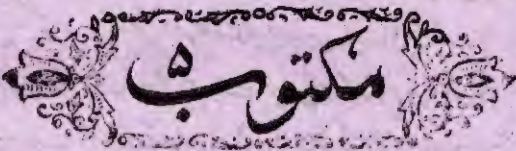 مکتوب ۵